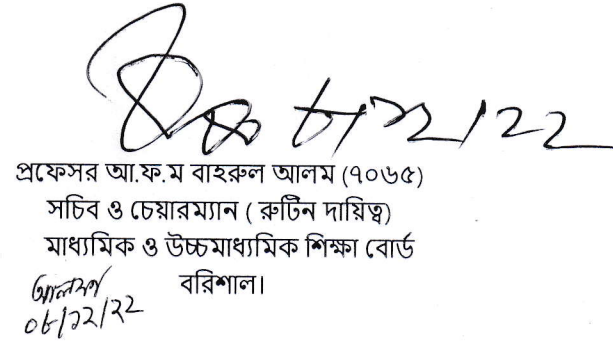 ৮/১২/২২
প্রফেসর আ.ফ.ম বাহারুল আলম (৭০৬৫)
সচিব ও চেয়ারম্যান ( রুটিন দায়িত্ব)
মাধ্যমিক ও উচ্চমাধ্যমিক শিক্ষা বোর্ড
বরিশাল।
০৮/১২/২২